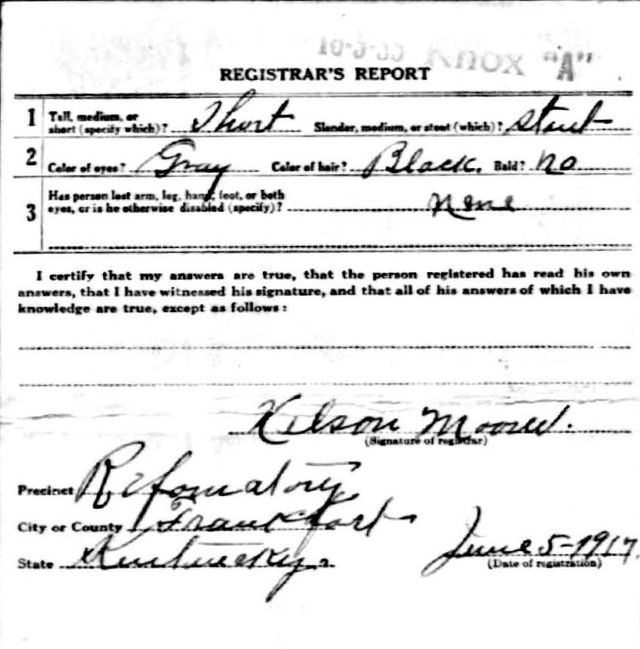 Knox "A"
REGISTRAR'S REPORT
1 Tall, medium, or short (specify which)? Short Slender, medium, or stout (which)? stout
2 Color of eyes? Gray Color of hair? Black. Bald? no
3 Has person lost arm, leg, hand, foot, or both eyes, or is he otherwise disabled (specify)? none
I certify that my answers are true, that the person registered has read his own
answers, that I have witnessed his signature, and that all of his answers of which I have
knowledge are true, except as follows:
(Signature of registrar)
Precinct Rifomatory
City or County Frankfort
State Kentucky.
June 5-1917.
(Date of registration)